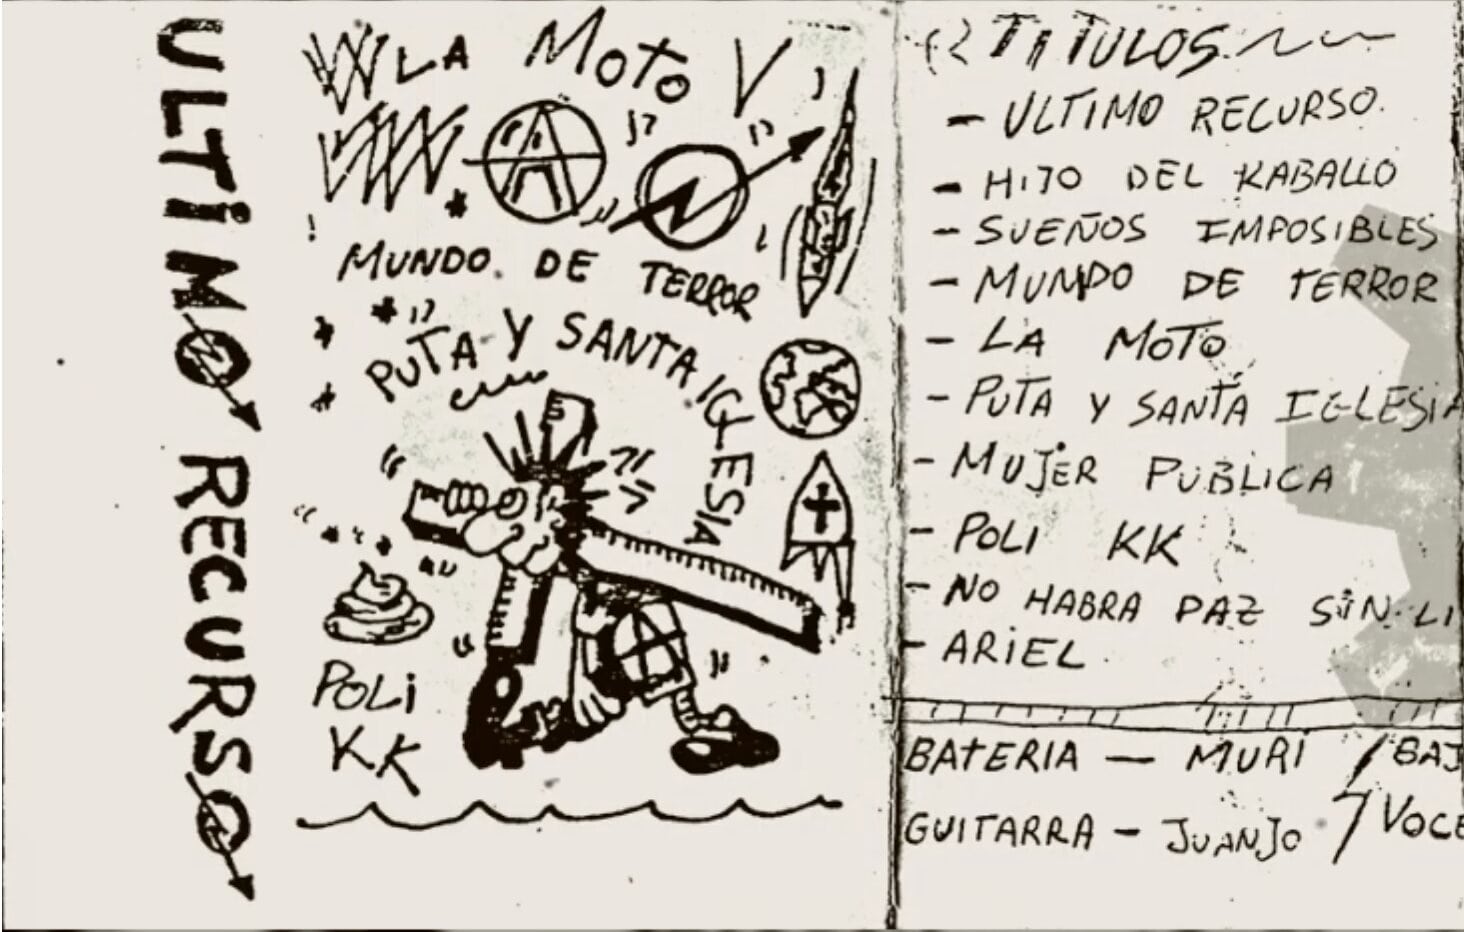 ULTIMO RECURSO
LA MOTO
MUNDO DE TERROR
PUTA Y SANTA IGLESIA
POLI
KK
TITULOS
- ULTIMO RECURSO.
- HIJO DEL KABALLO
- SUEÑOS IMPOSIBLES
- MUNDO DE TERROR
- LA MOTO
- PUTA Y SANTA IGLESIA
- MUJER PUBLICA
- POLI KK
- NO HABRA PAZ SIN LI
- ARIEL
BATERIA — MURI / BAJ
GUITARRA - JUANJO / VOCE